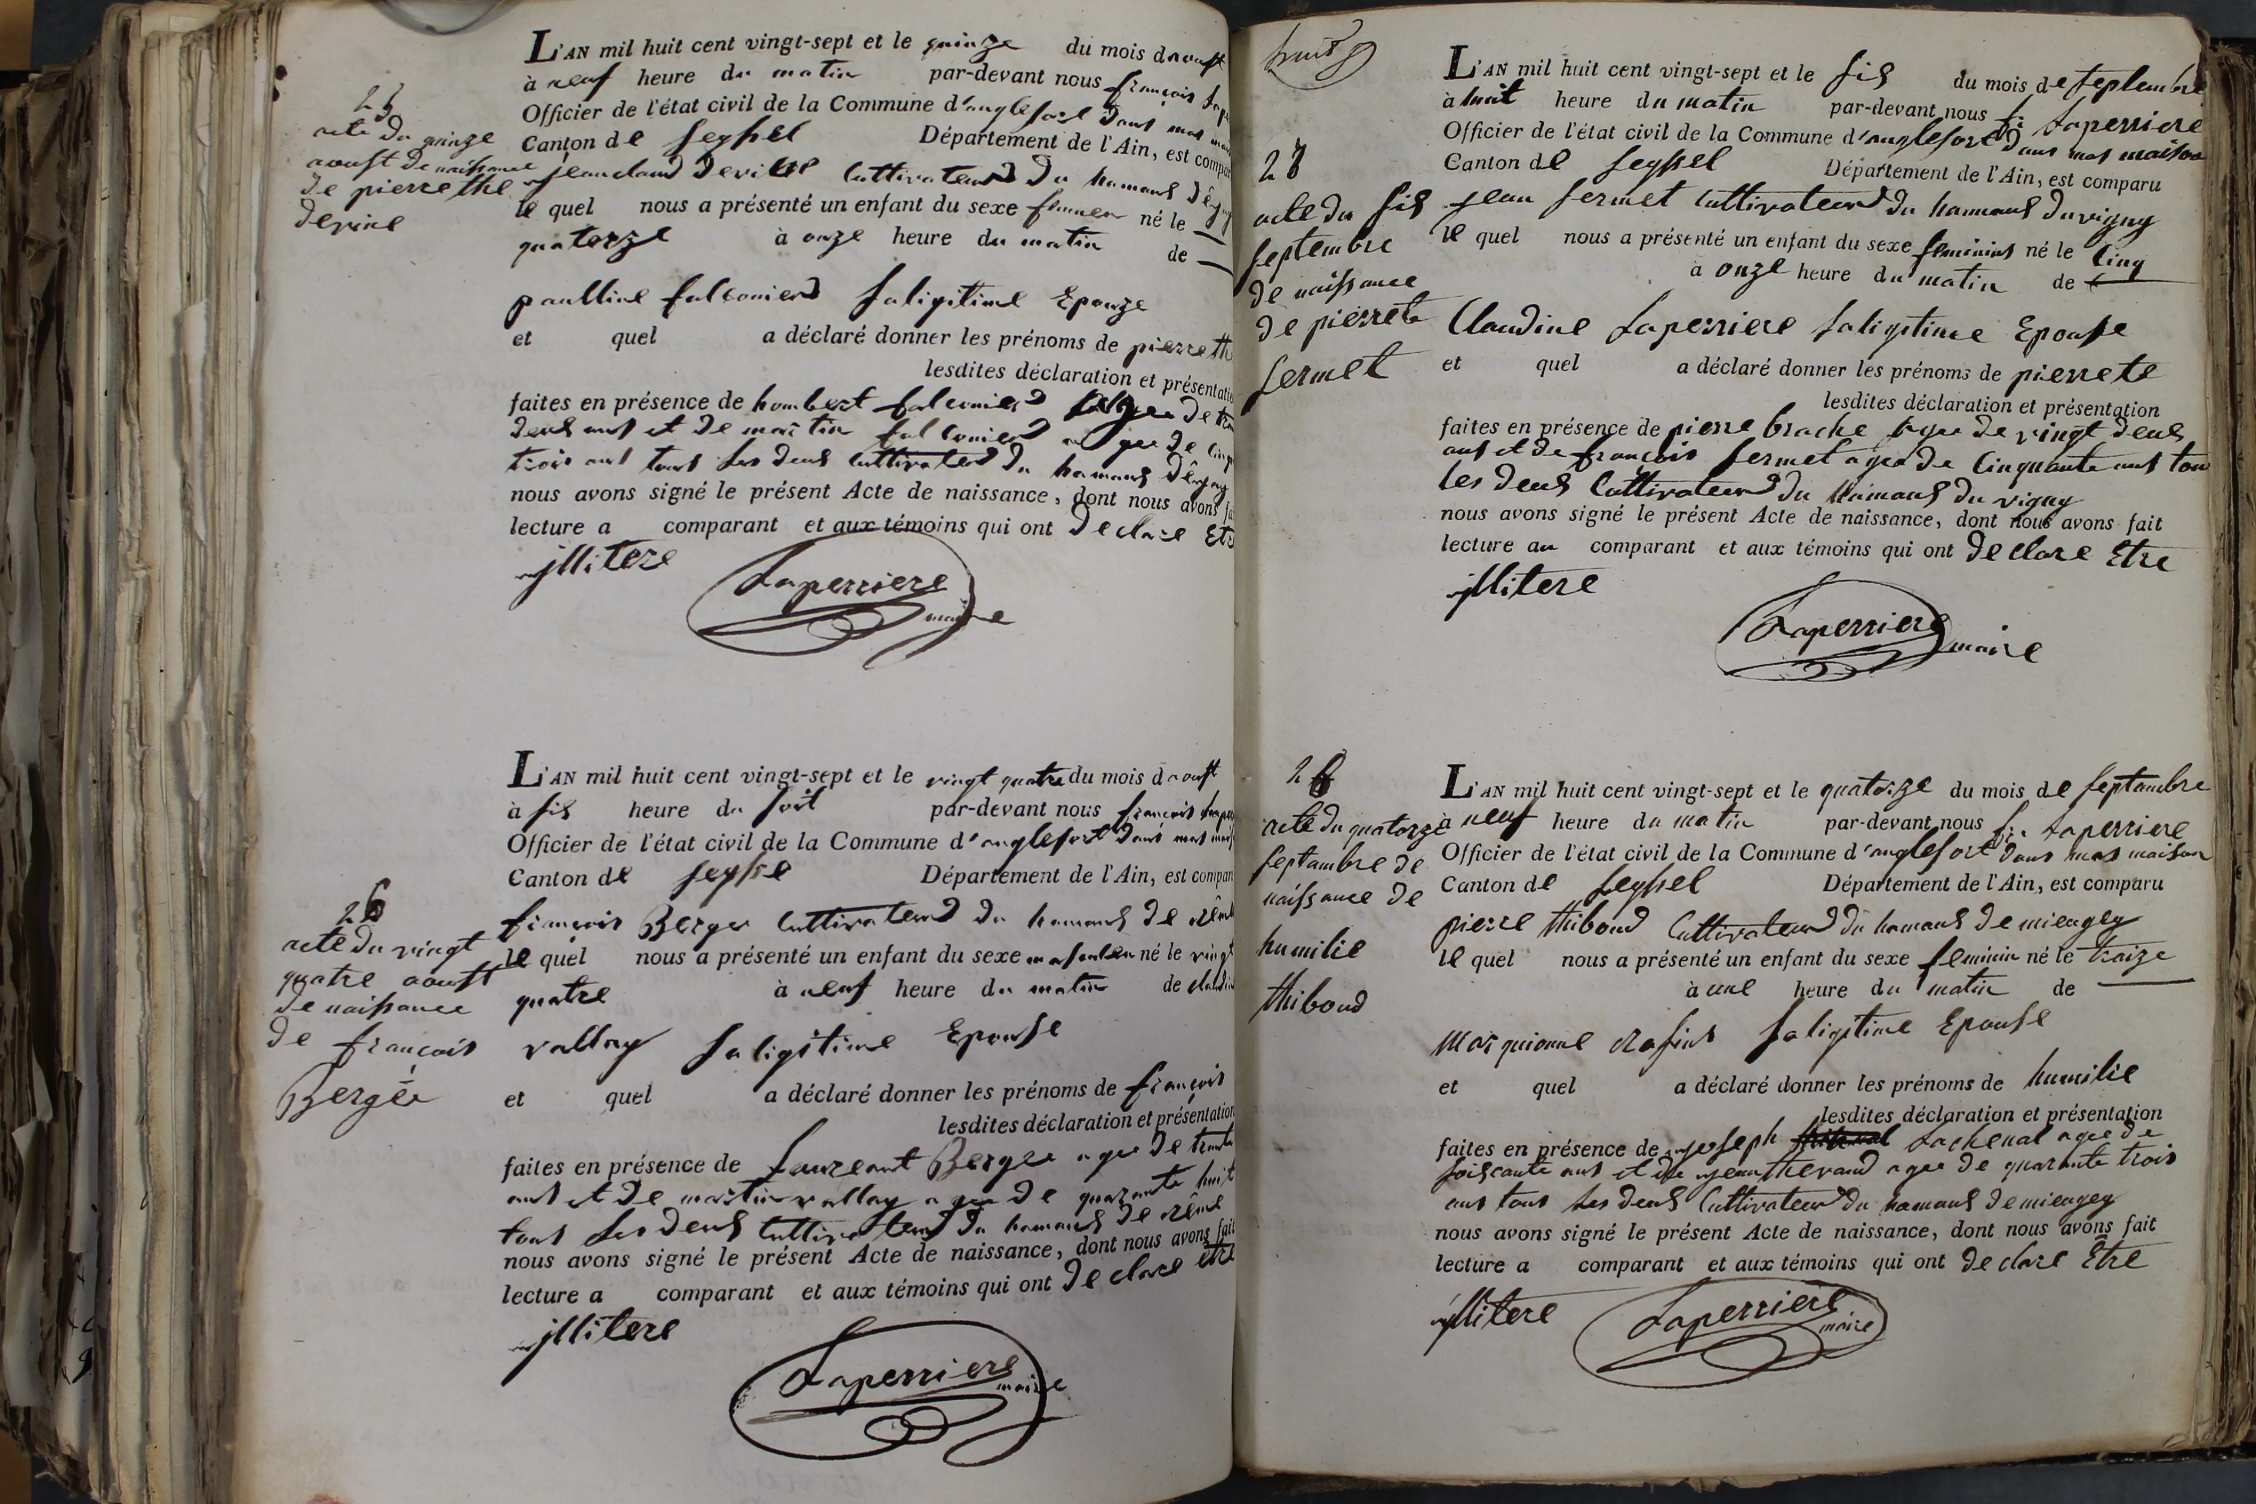 25
acte du quinze
aoust de naissance
de pierrethe
devine
L'AN mil huit cent vingt-sept et le quinze du mois daoust
à neuf heure du matin par-devant nous françois
Officier de l'état civil de la Commune d'anglefort dans mas
Canton de Seyssel Département de l'Ain, est compar
jean claud Cultivateur du hamaus
le quel nous a présenté un enfant du sexe né le
quatorze à onze heure du matin de
paulline falconier Saligitime Epouze
et quel a déclaré donner les prénoms de pierreth
lesdites déclaration et présentatio
faites en présence de hombert falconier agee de
deus ans et de martin falconier agee de
trois ans tous les deus Cultivateur du hamaus
nous avons signé le présent Acte de naissance, dont nous avons
lecture a comparant et aux témoins qui ont declare Etr
illitere
Laperriere
maire
26
acte du vingt
quatre aoust
de naissance
de françois
Berger
L'AN mil huit cent vingt-sept et le vingt quatre du mois daoust
à sis heure du soit par-devant nous francois
Officier de l'état civil de la Commune d'anglefort dans mas
Canton de Seysse Département de l'Ain, est compar
françois Berger Cultivateur du hamaus de
le quel nous a présenté un enfant du sexe né le vingt
quatre à neuf heure du matin de
vallay Saligitime Epouse
et quel a déclaré donner les prénoms de françois
lesdites déclaration et présentation
faites en présence de Laureant Berger agee de
ans et de martin vallay agee de quarante huit
tous les deus Cultivateur du hamaus de
nous avons signé le présent Acte de naissance, dont nous avons fait
lecture a comparant et aux témoins qui ont declare etre
illitere
Laperriere
maire
huit
27
acte du sis
septembre
de naissance
de pierrete
fermet
L'AN mil huit cent vingt-sept et le sis du mois de septembre
à huit heure du matin par-devant nous f: Laperriere
Officier de l'état civil de la Commune d'anglefort dans mas maison
Canton de Seyssel Département de l'Ain, est comparu
jean fermet Cultivateur du hamaus du vigny
le quel nous a présenté un enfant du sexe feminins né le Cinq
à onze heure du matin de
Claudine Laperriere Saligitime Epouse
et quel a déclaré donner les prénoms de pierrete
lesdites déclaration et présentation
faites en présence de pierre brache agee de vingt deus
ans et de françois fermet agee de Cinquante ans tous
les deus Cultivateur du hamaus du vigny
nous avons signé le présent Acte de naissance, dont nous avons fait
lecture au comparant et aux témoins qui ont declare Etre
illitere
Laperriere
maire
28
acte du quatorze
septambre de
naissance de
humilie
thiboud
L'AN mil huit cent vingt-sept et le quatorze du mois de septambre
à neuf heure du matin par-devant nous f: Laperriere
Officier de l'état civil de la Commune d'anglefort dans mas maison
Canton de Seyssel Département de l'Ain, est comparu
pierre thiboud Cultivateur du hamaus de mieugey
le quel nous a présenté un enfant du sexe feminin né le traize
à une heure du matin de
marquionne Saligitime Epouse
et quel a déclaré donner les prénoms de humilie
lesdites déclaration et présentation
faites en présence de joseph Lachenal agee de
soiscante ans et de jean thevand agee de quarante trois
ans tous les deus Cultivateur du hamaus de mieugey
nous avons signé le présent Acte de naissance, dont nous avons fait
lecture a comparant et aux témoins qui ont declare Etre
illitere
Laperriere
maire